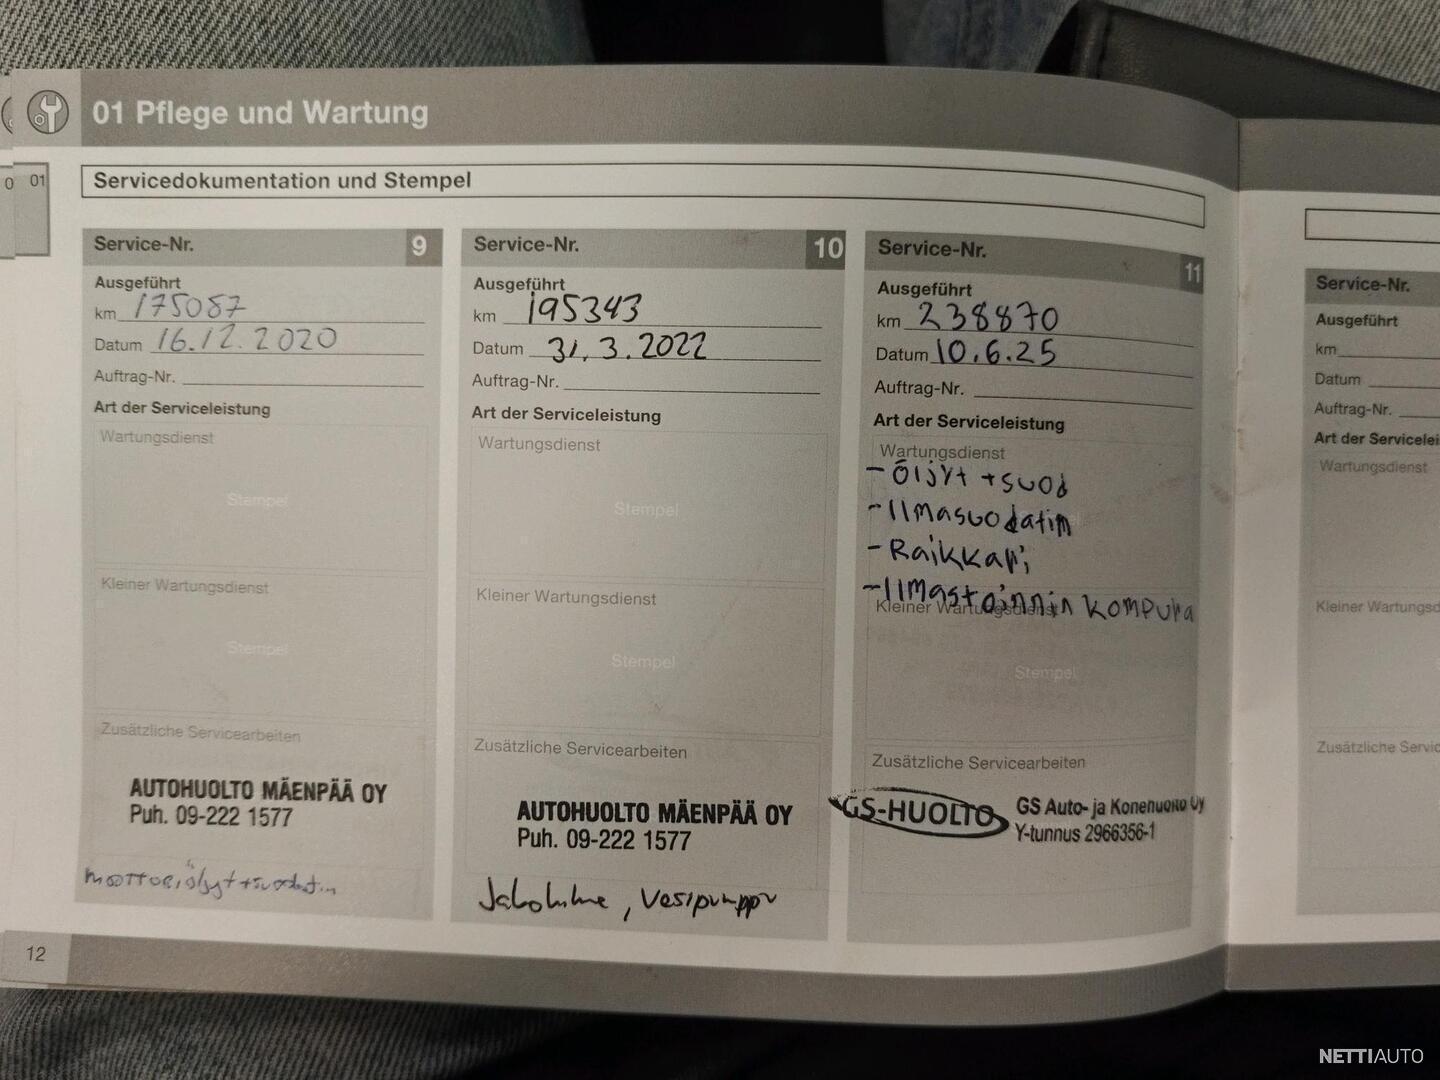 01 Pflege und Wartung
0
01
Servicedokumentation und Stempel
Service-Nr. 9
Ausgeführt
km 175087
Datum 16.12.2020
Auftrag-Nr.
Art der Serviceleistung
Wartungsdienst
Stempel
Kleiner Wartungsdienst
Stempel
Zusätzliche Servicearbeiten
AUTOHUOLTO MÄENPÄÄ OY
Puh. 09-222 1577
moottoriöljyt + suodatin
Service-Nr. 10
Ausgeführt
km 195343
Datum 31.3.2022
Auftrag-Nr.
Art der Serviceleistung
Wartungsdienst
Stempel
Kleiner Wartungsdienst
Stempel
Zusätzliche Servicearbeiten
AUTOHUOLTO MÄENPÄÄ OY
Puh. 09-222 1577
Jakohihna, Vesipumppu
Service-Nr. 11
Ausgeführt
km 238870
Datum 10.6.25
Auftrag-Nr.
Art der Serviceleistung
Wartungsdienst
- Öljyt + suod
- Ilmasuodatin
- Raikkari
- Ilmastoinnin kompura
Kleiner Wartungsdienst
Stempel
Zusätzliche Servicearbeiten
GS-HUOLTO
GS Auto- ja Konehuolto Oy
Y-tunnus 2966356-1
12
Service-Nr.
Ausgeführt
km
Datum
Auftrag-Nr.
Art der Servicelei
Wartungsdienst
Kleiner Wartungsd
Zusätzliche Servic
NETTIAUTO